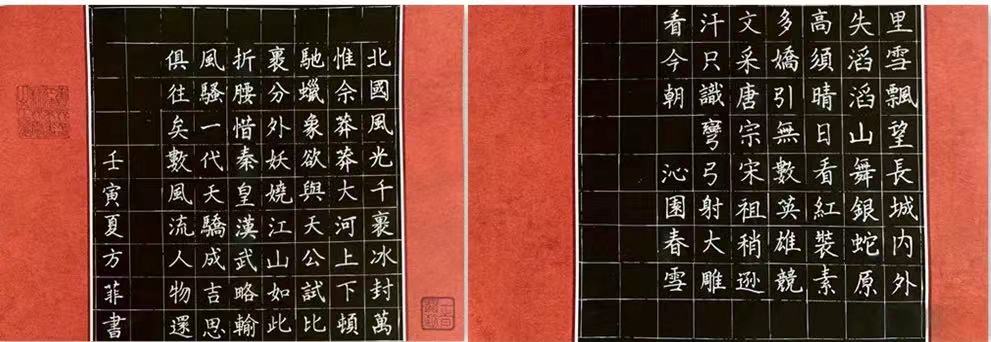 北國風光千裏冰封萬
惟余莽莽大河上下頓
馳蠟象欲與天公試比
裹分外妖嬈江山如此
折腰惜秦皇漢武略輸
風騷一代天驕成吉思
俱往矣數風流人物還
壬寅夏方菲書
里雪飄望長城內外
失滔滔山舞銀蛇原
高須晴日看紅裝素
多嬌引無數英雄競
文采唐宗宋祖稍遜
汗只識彎弓射大雕
看今朝 沁園春雪